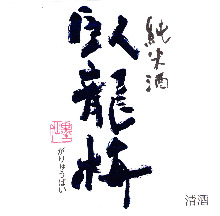 純米酒
臥龍梅
がりゅうばい
清酒